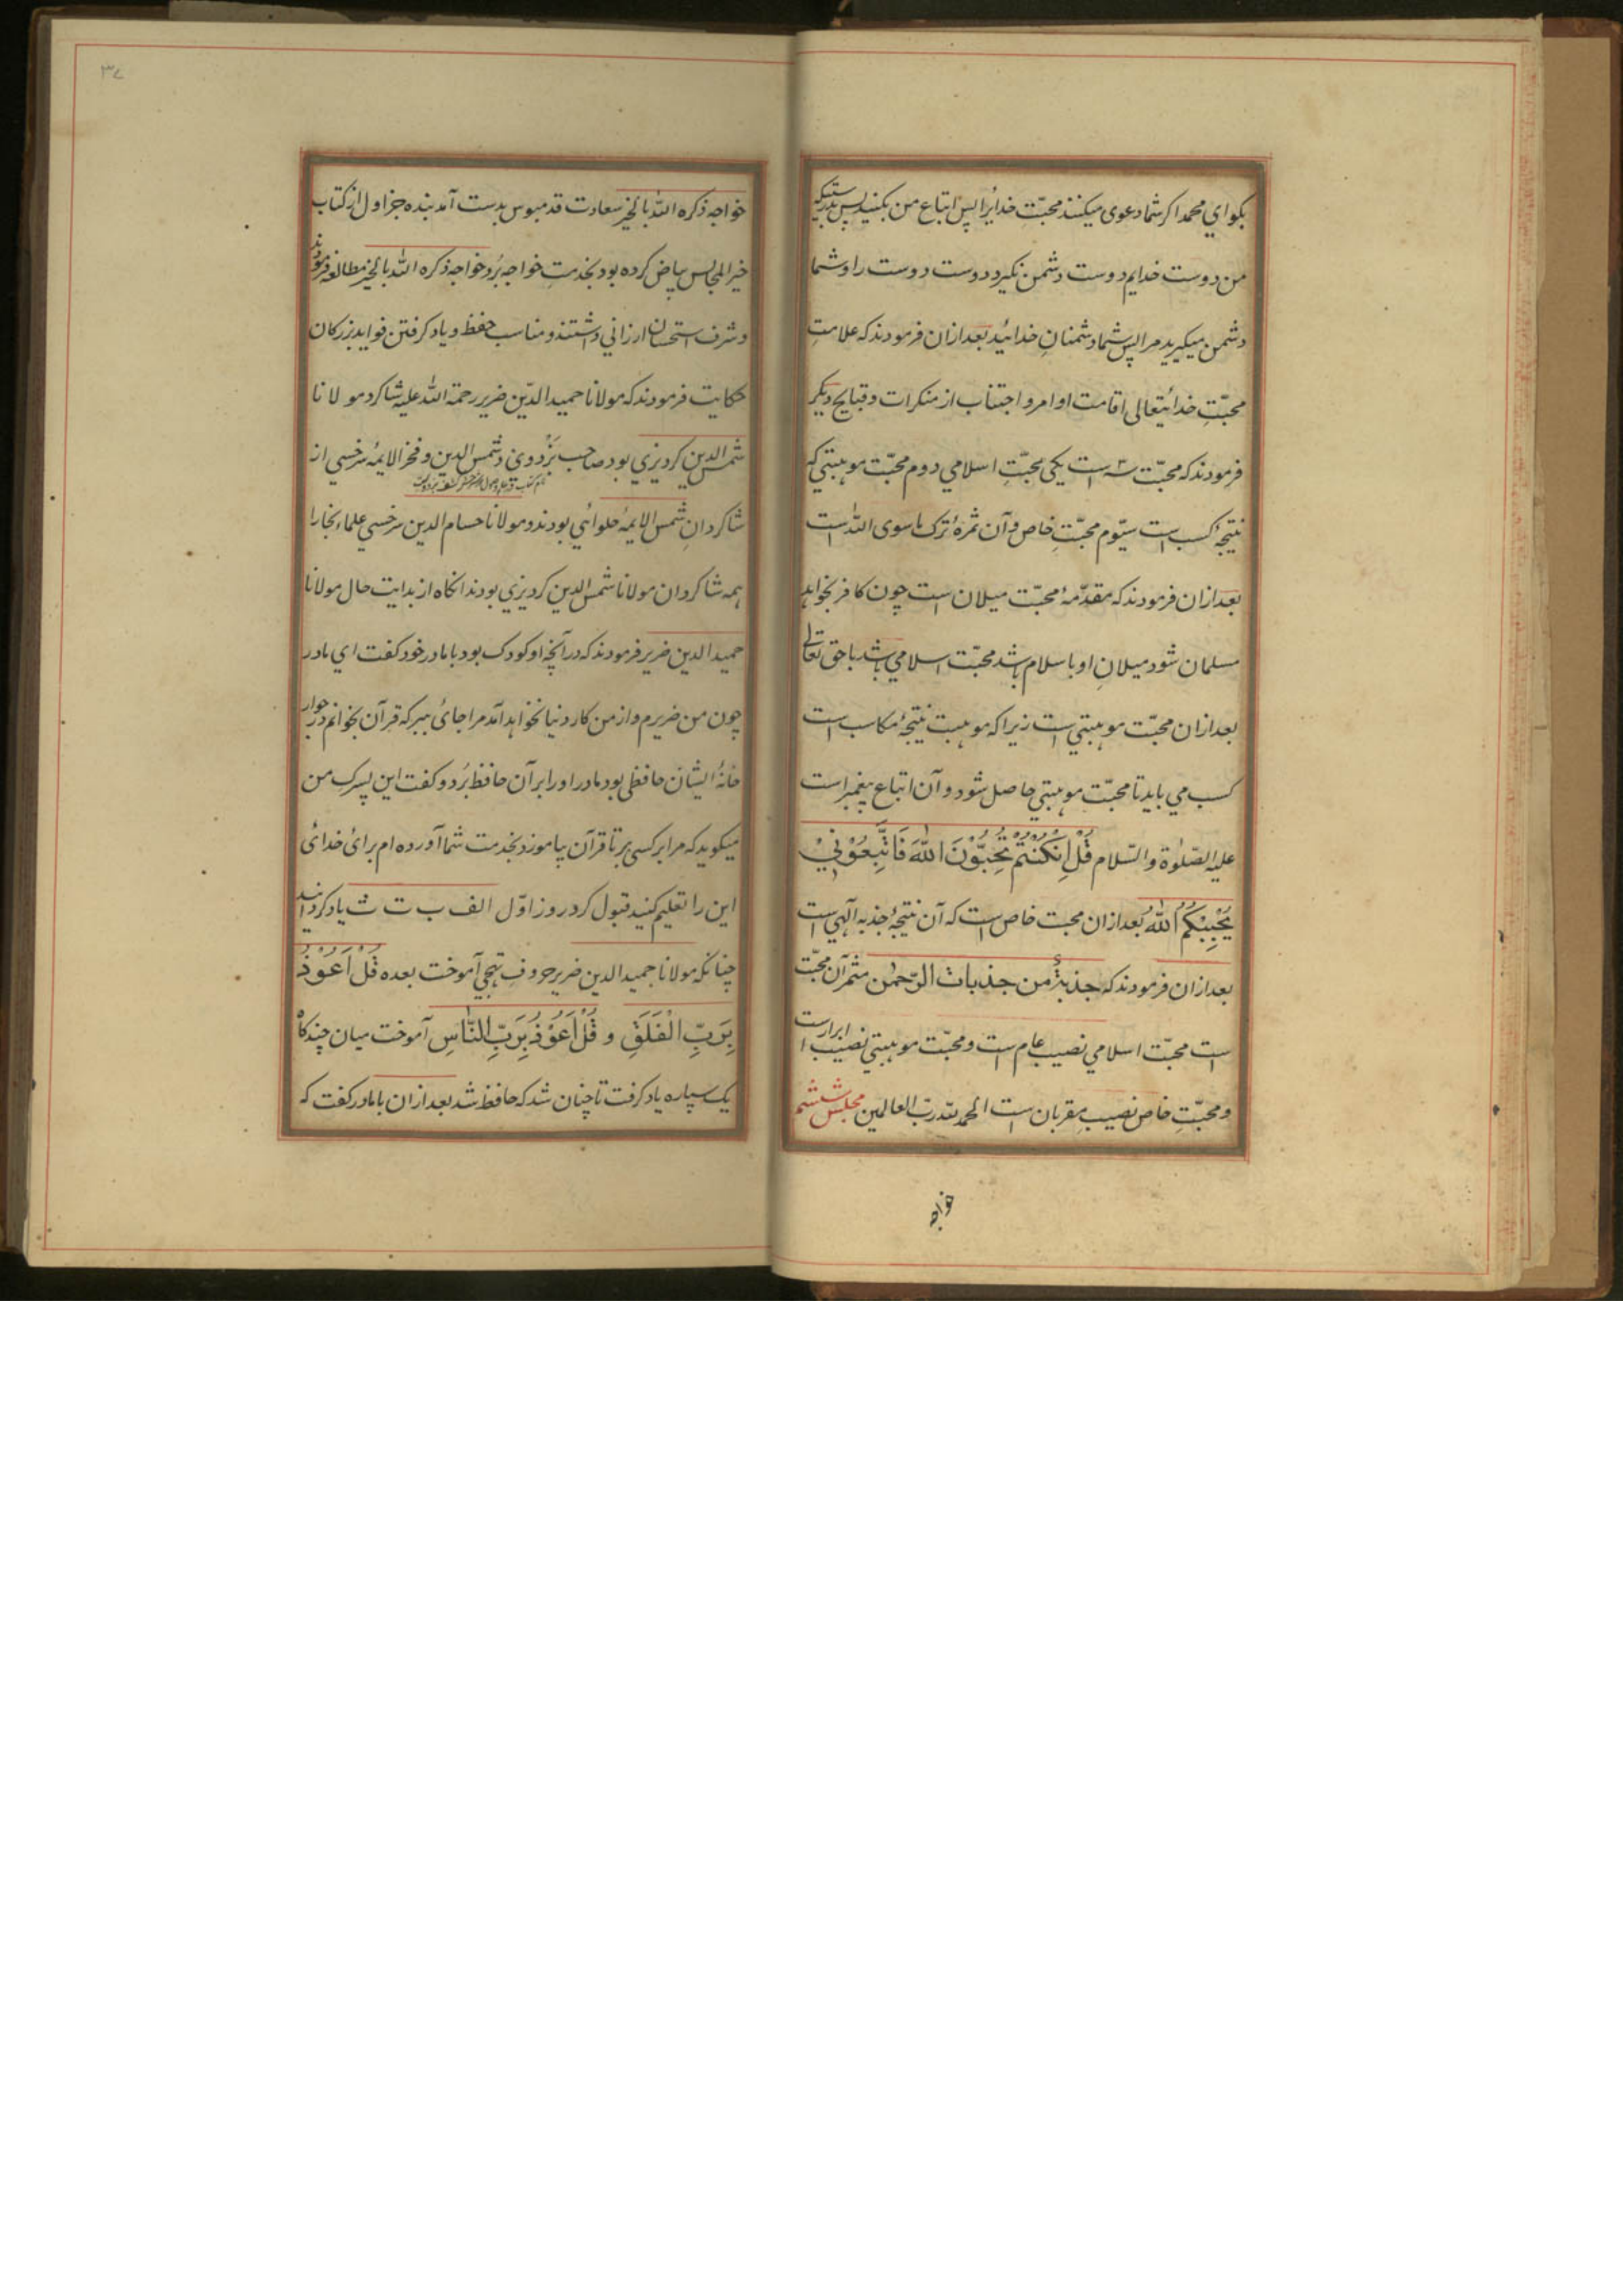 بکو اي محمد اکر شما دعوی میکنند محبّتِ خدایرا پس اتباع من بکنید پس بدرستیکه
من دوست خدایم دوست دشمن نکیرد دوست دوست را و شما
دشمن میکیرید مرا پس شما دشمنانِ خدائید بعد ازان فرمودند که علامتِ
محبّتِ خدائیتعالی اقامت اوامر و اجتناب از منکرات و قبایح دیکر
فرمودند که محبّت سه است یکی محبّتِ اسلامي دوم محبّت موهبتي که
نتیجهٔ کسب است سیّوم محبّتِ خاص و آن ثمرهٔ ترک ماسوی اللّٰه است
بعد ازان فرمودند که مقدّمهٔ محبّت میلان است چون کافر بخواهد
مسلمان شود میلانِ او باسلام باشد محبّت اسلامي باشد با حق تعالی
بعد ازان محبّت موهبتي است زیرا که موهبت نتیجهٔ مکاسب است
کسب مي باید تا محبّت موهبتي حاصل شود و آن اتباع پیغمبر است
علیه الصّلوٰة والسّلام قُلْ اِنْکُنْتُمْ تُحِبُّوْنَ اللّٰهَ فَاتَّبِعُوْنِيْ
یُحْبِبْکُمُ اللّٰهُ بعد ازان محبت خاص است که آن نتیجهٔ جذبه آلهي است
بعد ازان فرمودند که جذبةٌ من جذبات الرّحمٰن مثمر آن محبّت
است محبّت اسلامي نصیب عام است و محبّت موهبتي نصیب ابرار است
و محبّتِ خاص نصیبِ مقربان است الحمد للّه ربّ العالمین مجلس ششم
خواجه
٣٧
خواجه ذکره اللّٰه بالخیر سعادت قدمبوس بدست آمد بنده جز اول از کتاب
خیر المجالس بیاض کرده بود بخدمتِ خواجه بُرد خواجه ذکره اللّٰه بالخیر مطالعه فرمودند
و شرف استحسان ارزاني داشتند و مناسب حفظ و یاد کرفتن فواید بزرکان
حکایت فرمودند که مولانا حمید الدّین ضریر رحمة اللّٰه علیه شاکرد مولانا
شمس الدین کردیزي بود صاحب بَزْدوي و شمس الدین و فخر الایمهٔ سرخسي از
شاکردانِ شمس الایمهٔ حلوائي بودند و مولانا حسام الدین سرخسي علماء بخارا
همه شاکردان مولانا شمس الدین کردیزي بودند انکاه از بدایت حال مولانا
حمید الدین ضریر فرمودند که در آنچه او کودک بود با مادر خود کفت اي مادر
چون من ضریرم و از من کار دنیا نخواهد آمد مرا جائ ببر که قرآن بخوانم در جوار
خانهٔ ایشان حافظی بود مادر او را برآن حافظ بُرد و کفت این پسرکِ من
میکوید که مرا بر کسی بر تا قرآن بیاموزد بخدمت شما آورده ام برائ خدائ
این را تعلیم کنید قبول کرد روز اوّل الف ب ت ث یاد کردانید
چنانکه مولانا حمید الدین ضریر حروفِ تهجّي آموخت بعده قُلْ اَعُوْذُ
بِرَبِّ الْفَلَقِ و قُلْ اَعُوْذُ بِرَبِّ النَّاسِ آموخت میان چندکاه
یک سپاره یاد کرفت تا چنان شد که حافظ شد بعد ازان با مادر کفت که